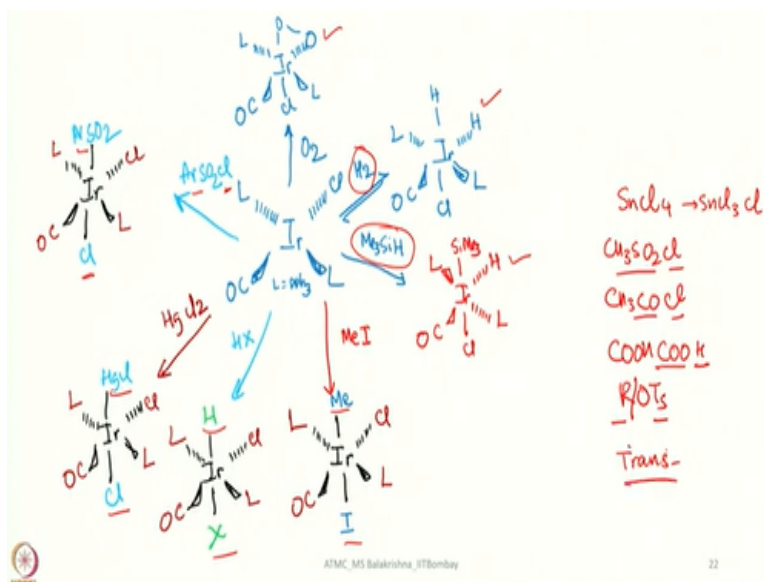 O
L O
Ir
OC L
Cl
O2
ArSO2
L Cl
Ir
OC L
Cl
ArSO2Cl
H
L H
Ir
OC L
Cl
H2
L Cl
Ir
OC L
L = PPh3
Me3SiH
SiMe3
L H
Ir
OC L
Cl
HgCl2
HX
MeI
HgCl
L Cl
Ir
OC L
Cl
H
L Cl
Ir
OC L
X
Me
L Cl
Ir
OC L
I
SnCl4 → SnCl3 Cl
CH3SO2Cl
CH3COCl
R/OTs
Trans-
ATMC_MS Balakrishna_IITBombay
22